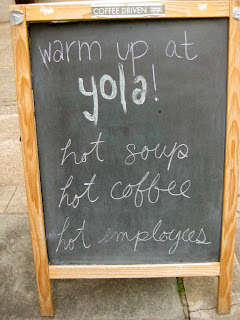 COFFEE DRIVEN
warm up at
yola!
hot soup
hot coffee
hot employees